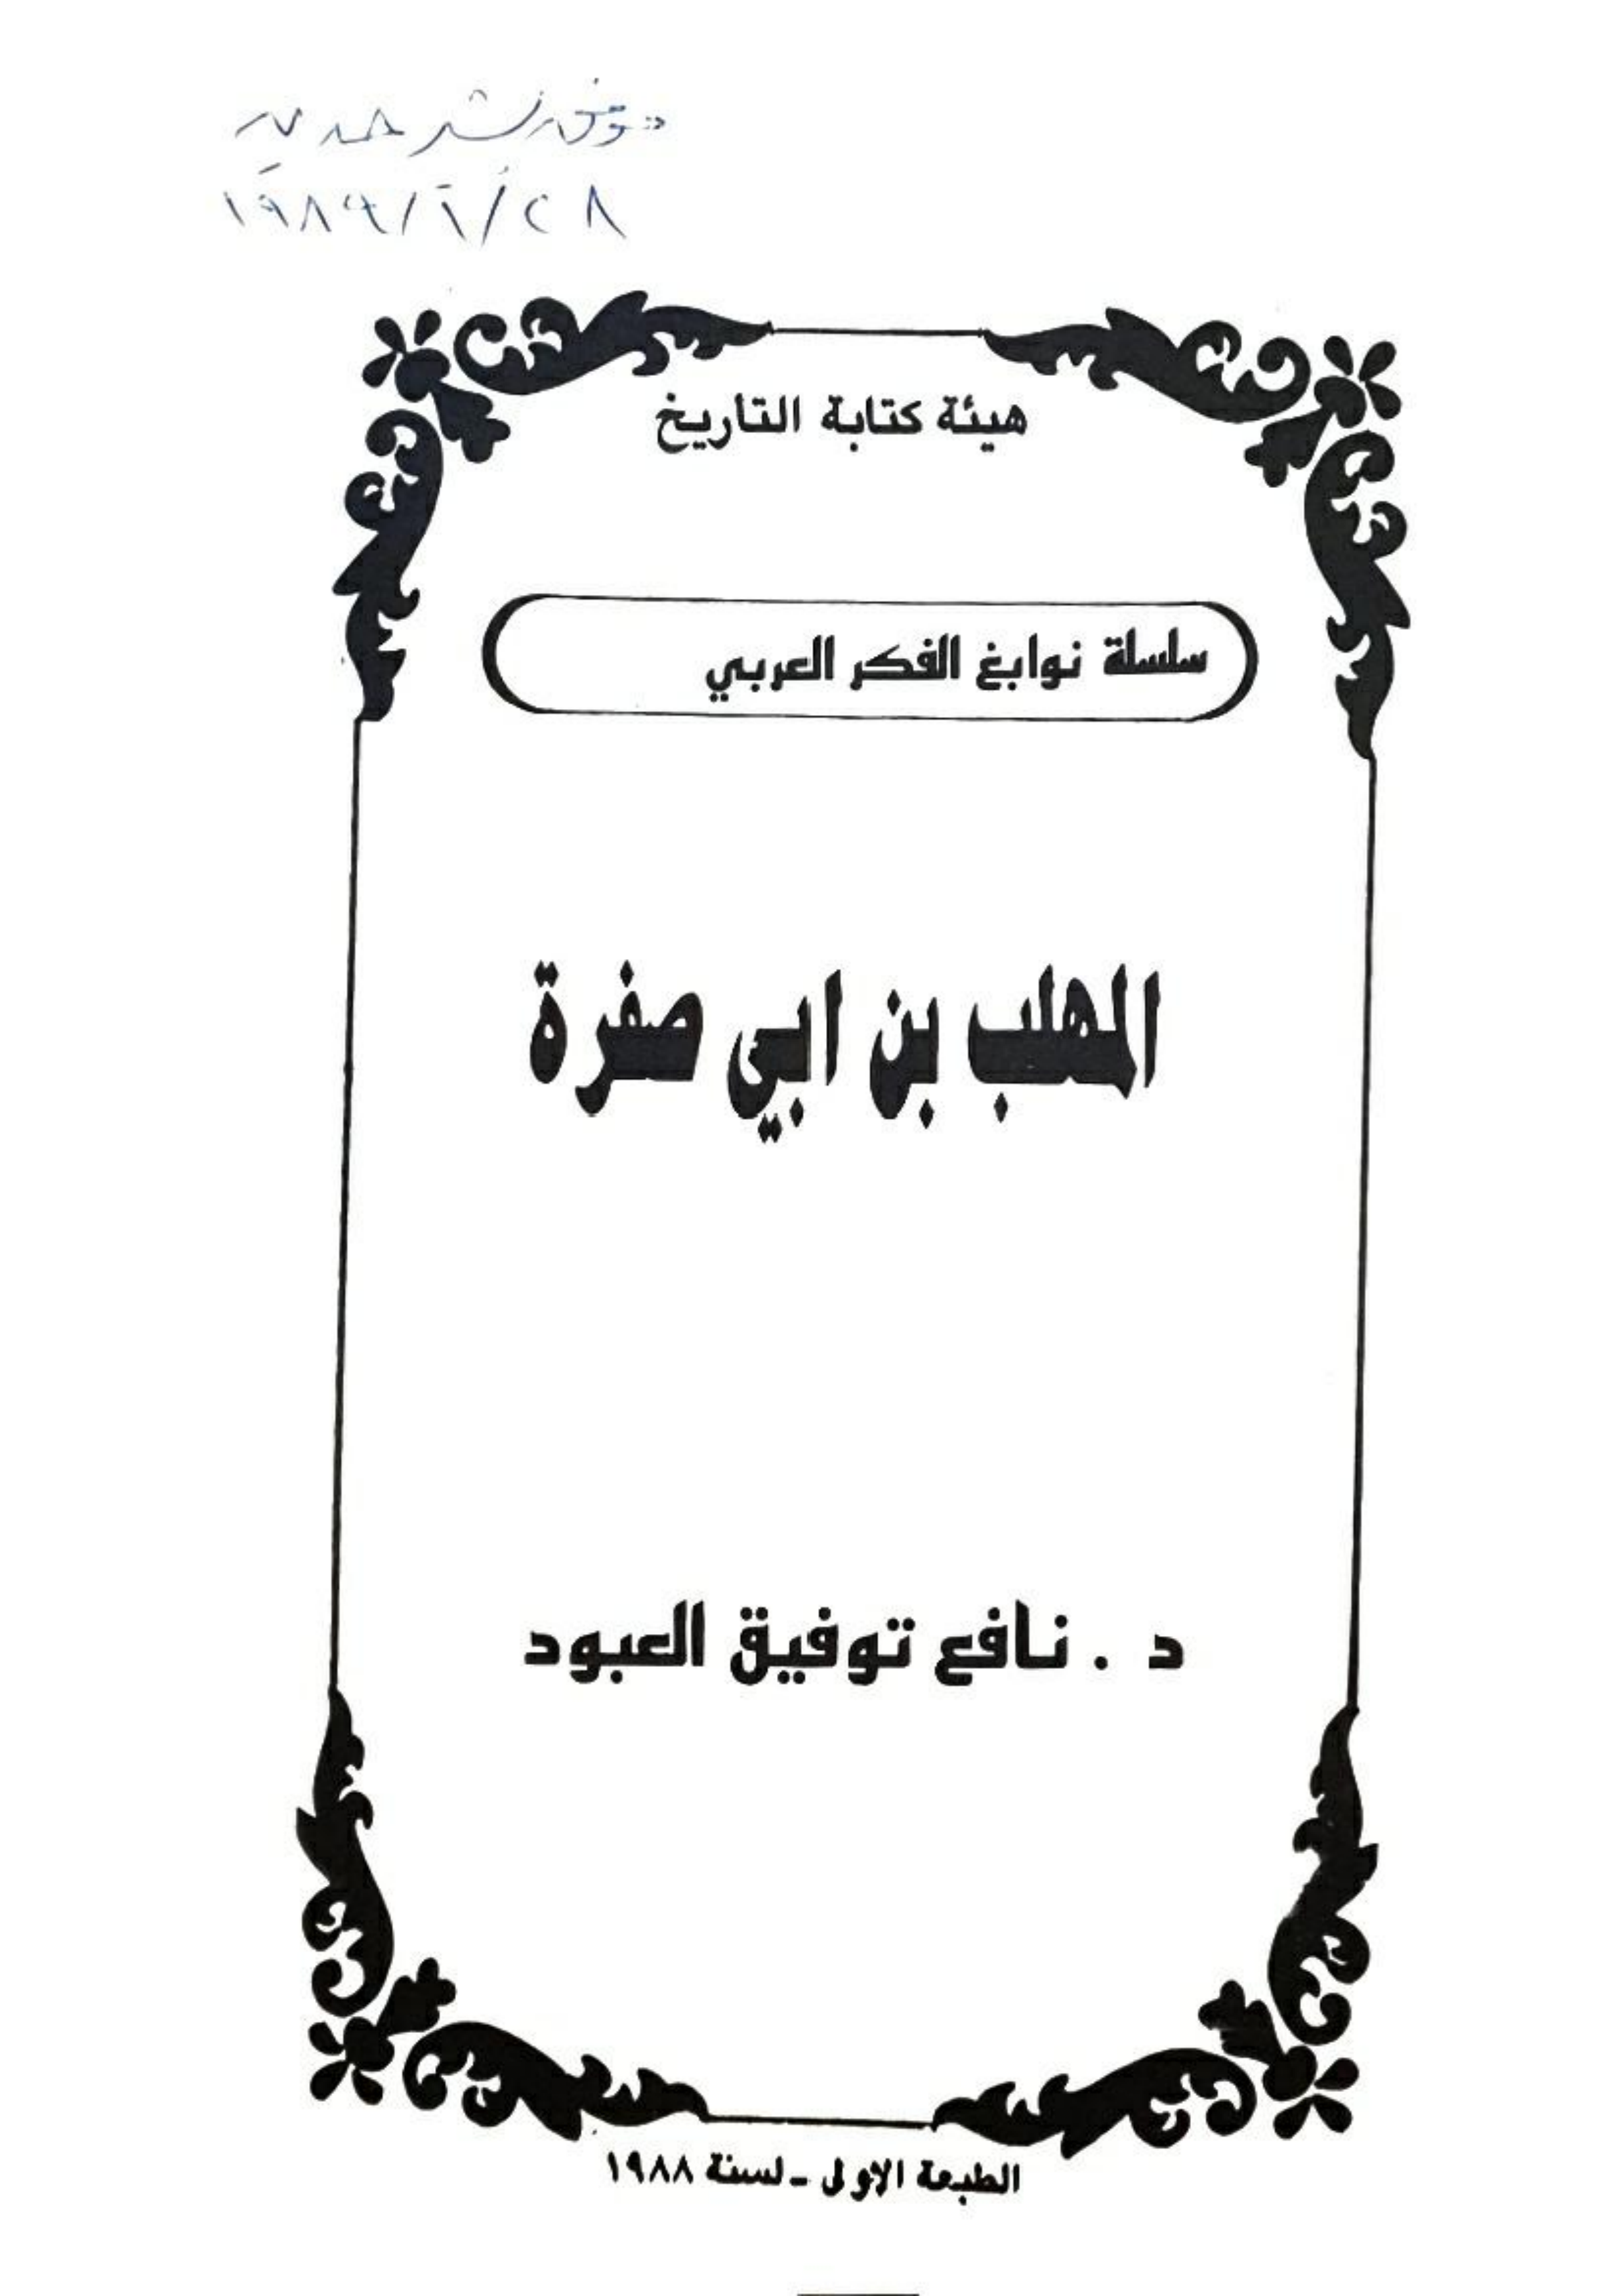 ١٩٨٩/٦/٢٨
هيئة كتابة التأريخ
سلسلة نوابغ الفكر العربي
المهلب بن ابي صفرة
د . نافع توفيق العبود
الطبعة الاولى - لسنة ١٩٨٨